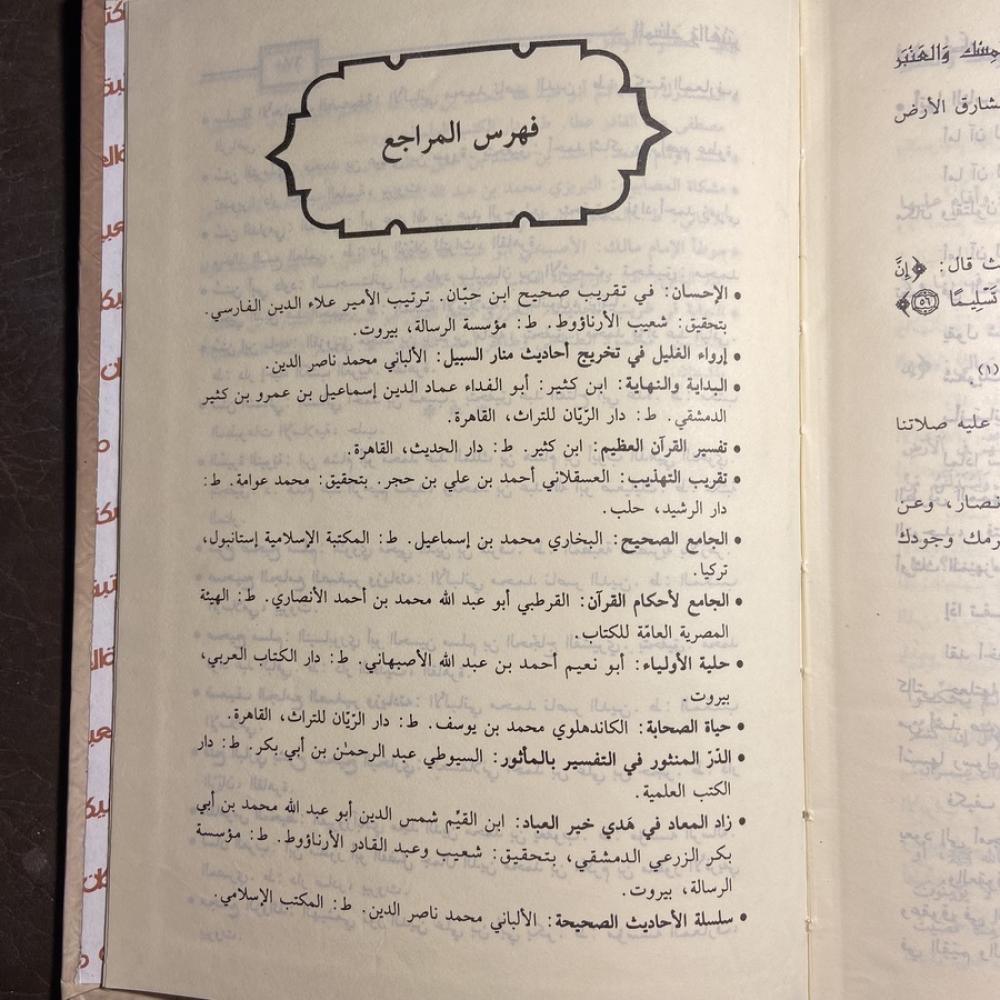 فهرس المراجع
• الإحسان: في تقريب صحيح ابن حبّان. ترتيب الأمير علاء الدين الفارسي.
بتحقيق: شعيب الأرناؤوط. ط: مؤسسة الرسالة، بيروت.
• إرواء الغليل في تخريج أحاديث منار السبيل: الألباني محمد ناصر الدين.
• البداية والنهاية: ابن كثير: أبو الفداء عماد الدين إسماعيل بن عمرو بن كثير
الدمشقي. ط: دار الرّيّان للتراث، القاهرة.
• تفسير القرآن العظيم: ابن كثير. ط: دار الحديث، القاهرة.
• تقريب التهذيب: العسقلاني أحمد بن علي بن حجر. بتحقيق: محمد عوامة. ط:
دار الرشيد، حلب.
• الجامع الصحيح: البخاري محمد بن إسماعيل. ط: المكتبة الإسلامية إستانبول،
تركيا.
• الجامع لأحكام القرآن: القرطبي أبو عبد الله محمد بن أحمد الأنصاري. ط: الهيئة
المصرية العامّة للكتاب.
• حلية الأولياء: أبو نعيم أحمد بن عبد الله الأصبهاني. ط: دار الكتاب العربي،
بيروت.
• حياة الصحابة: الكاندهلوي محمد بن يوسف. ط: دار الرّيّان للتراث، القاهرة.
• الدّرّ المنثور في التفسير بالمأثور: السيوطي عبد الرحمٰن بن أبي بكر. ط: دار
الكتب العلمية.
• زاد المعاد في هَدي خير العباد: ابن القيِّم شمس الدين أبو عبد الله محمد بن أبي
بكر الزرعي الدمشقي، بتحقيق: شعيب وعبد القادر الأرناؤوط. ط: مؤسسة
الرسالة، بيروت.
• سلسلة الأحاديث الصحيحة: الألباني محمد ناصر الدين. ط: المكتب الإسلامي.
وَالعَنْبَر
الأرض
ث قال: ﴿إِنَّ
تَسْلِيمًا ﴿٥٦﴾﴾
(١).
عليه صلاتنا
وعن
وجودك